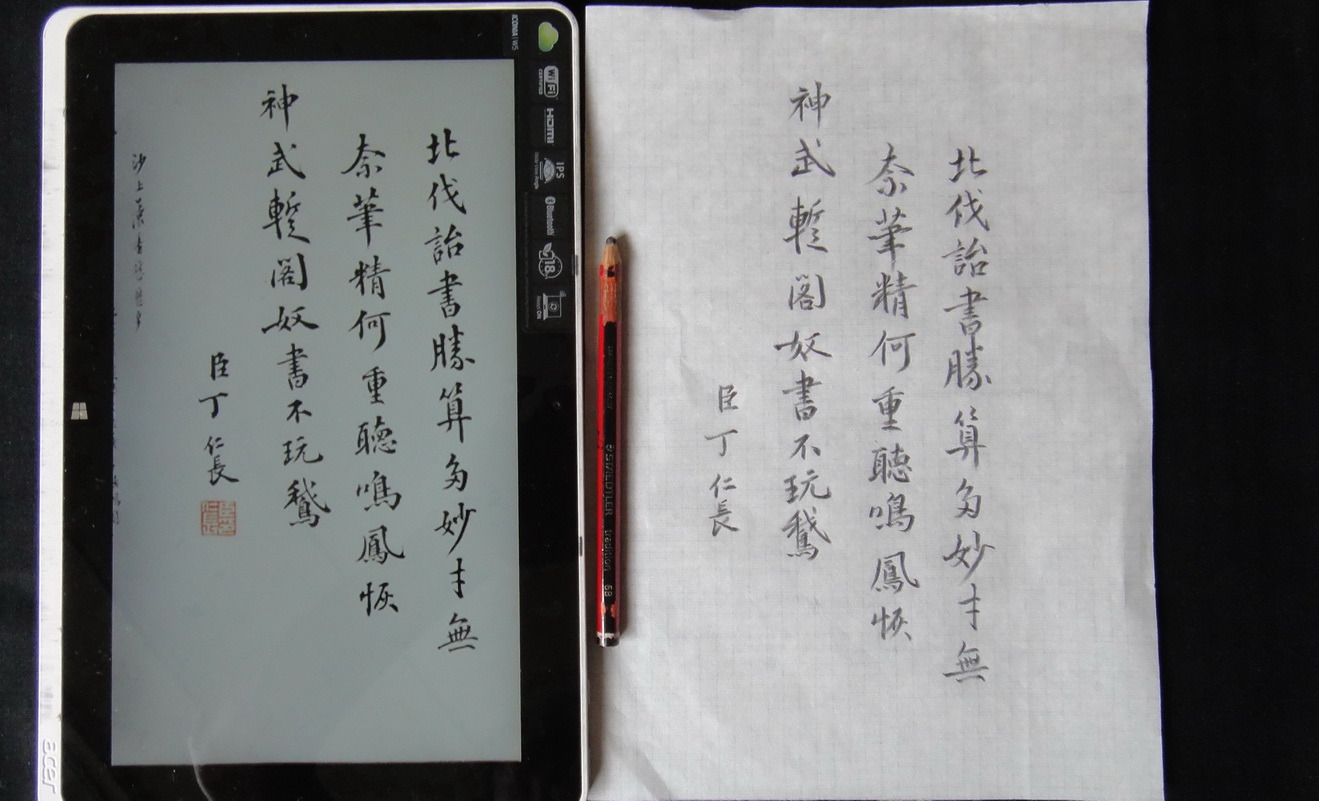 北伐詒書勝算多妙才無
奈筆精何重聽鳴鳳恢
神武蹔閣奴書不玩鵞
臣丁仁長
沙上
ICONIA W5
WiFi
CERTIFIED
HDMI
IPS
Bluetooth
acer
STAEDTLER tradition
北伐詒書勝算多妙才無
奈筆精何重聽鳴鳳恢
神武蹔閣奴書不玩鵞
臣丁仁長